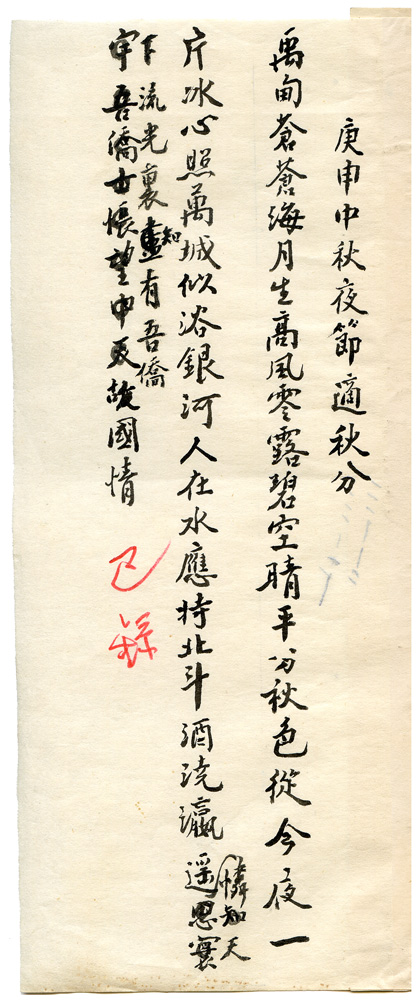 庚申中秋夜節適秋分
禹甸蒼蒼海月生高風零露碧空晴平分秋色從今夜一
片冰心照萬城似浴銀河人在水應持北斗酒澆瀛遥思寰
憐知天
下流光裏盡有吾僑
知
宇吾僑士悵望中天故國情
已錄